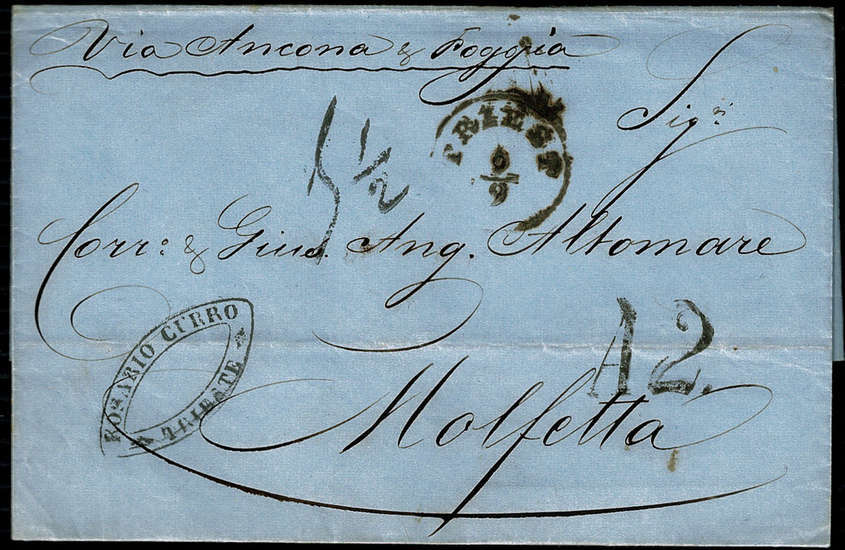 Via Ancona & Foggia
Sigri
TRIEST
9/9
5 1/2
Corr: & Gius. Ang. Altomare
ROSARIO CURRO
A TRIESTE
A2.
Molfetta